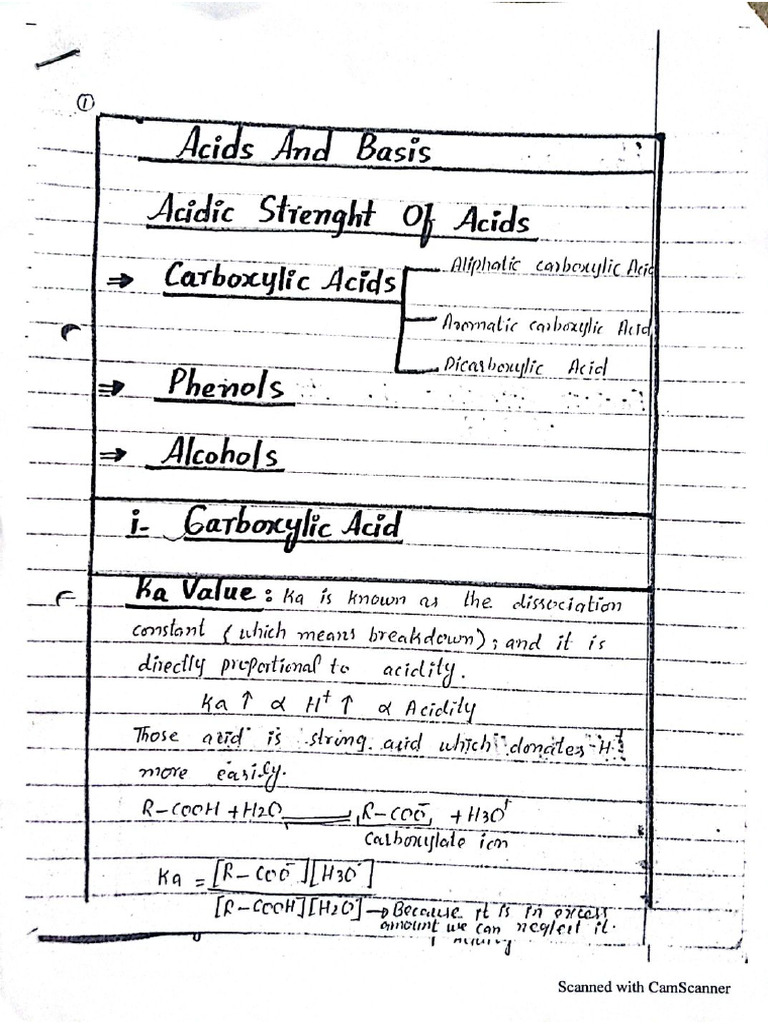 ①
Acids And Basis
Acidic Strenght Of Acids
⇒ Carboxylic Acids
Aliphatic carboxylic Acid
Aromatic carboxylic Acid
Dicarboxylic Acid
⇒ Phenols
⇒ Alcohols
i- Carboxylic Acid
Ka Value : Ka is known as the dissociation
constant (which means breakdown); and it is
directly proportional to acidity.
Ka ↑ ∝ H⁺ ↑ ∝ Acidity
Those acid is strong acid which donates H⁺
more easily.
R-COOH + H2O ⇌ R-COO⁻ + H3O⁺
Carboxylate ion
Ka = [R-COO⁻][H3O⁺]
[R-COOH][H2O] → Because it is in excess
amount we can neglect it.
Scanned with CamScanner